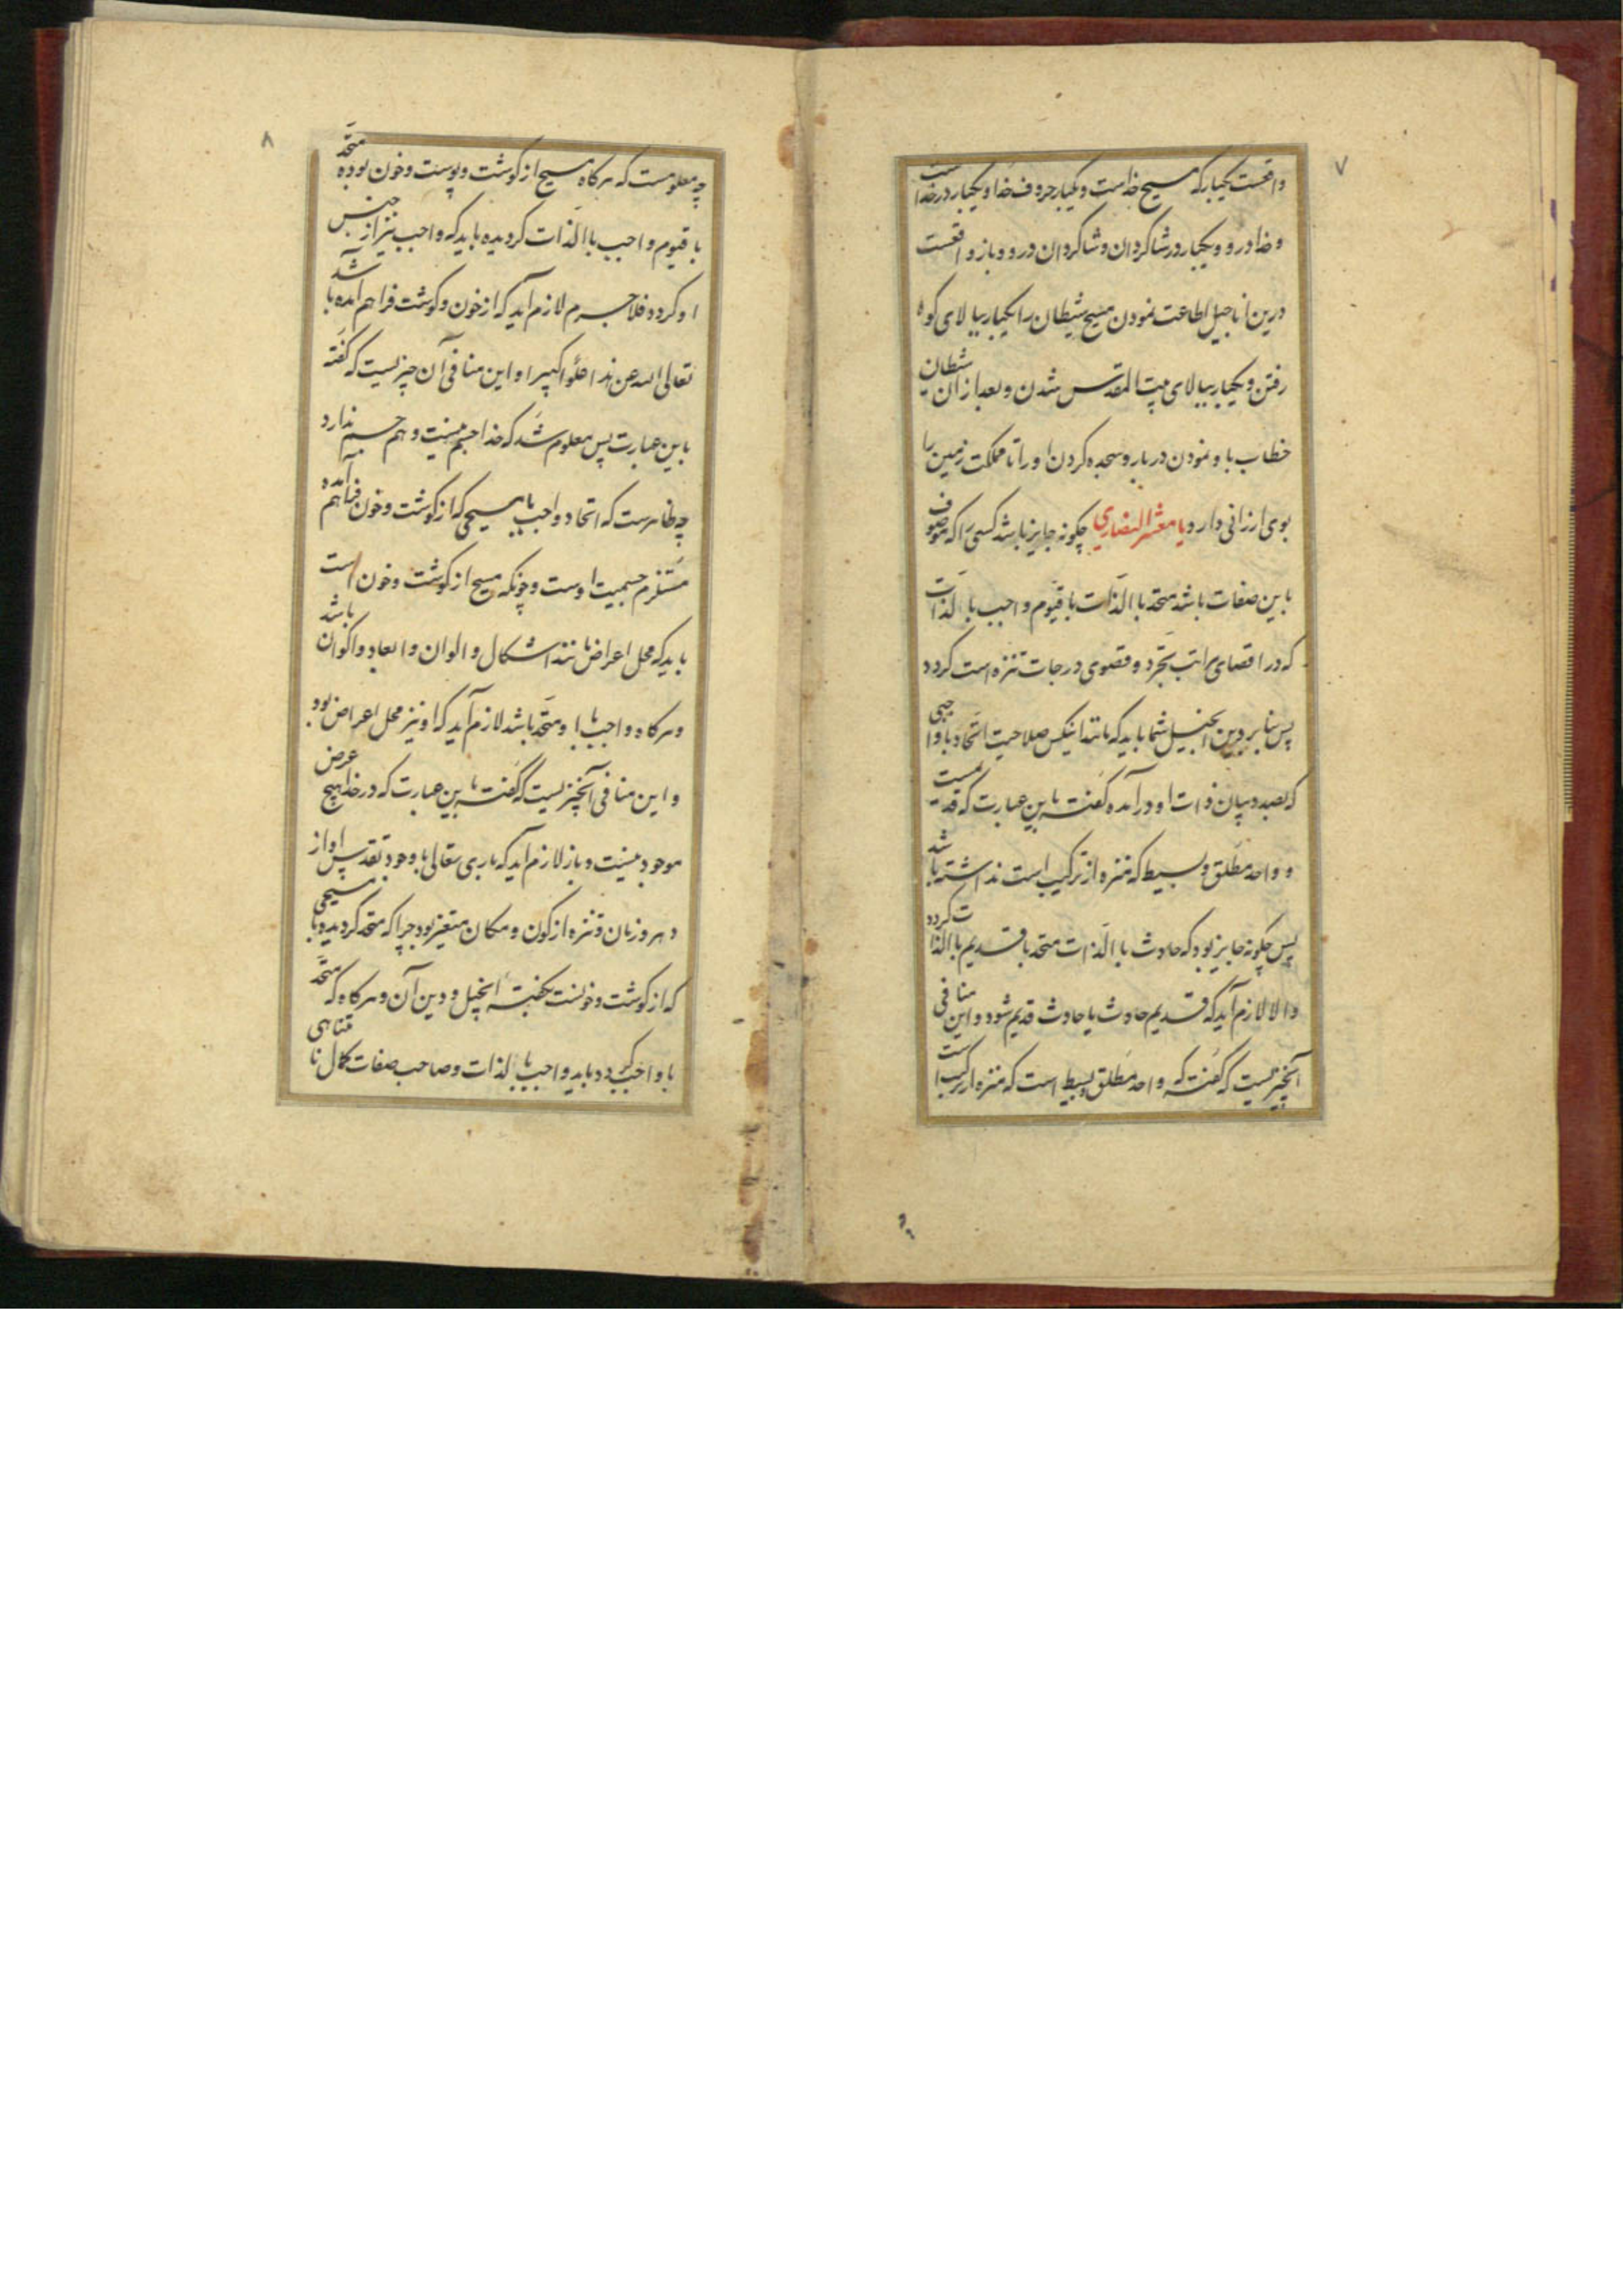 ۷
واقعست یکبار که مسیح خداست و یکبار حروف خدا و یکبار در خداست
و خدا درو و یکبار در شاکردان و شاکردان درو و باز واقعست
درین اناجیل اطاعت نمودن مسیح شیطان را یکبار ببالای کوه
رفتن و یکبار ببالای بیت المقدس شدن و بعد از ان شیطان
خطاب باو نمودن در باره سجده کردن او را تا مملکت زمین را
بوی ارزانی دارد یا معشر النصاری چکونه جایز باشد کسی را که موصوف
باین صفات باشد متحد با الذات با قیوم واجب با الذات
که در اقصای مراتب تجرد و قصوی درجات تنزه است کردد
پس بنابر دین انجیل شما باید که مانند اینکس صلاحیت اتحاد با واجبی
که بصدد بیان ذات او در آمده کفته باین عبارت که قدیمیست
و واحد مطلق و بسیط که منزه از ترکیب است نداشته باشد
پس چکونه جایز بود که حادث با الذات متحد با قدیم با الذات کردد
و الا لازم آید که قدیم حادث یا حادث قدیم شود و این منافی
آنچیزیست که کفته که واحد مطلق بسیط است که منزه از ترکیب است
۸
چه معلومست که هرکاه مسیح از کوشت و پوست و خون بوده متحد
با قیوم واجب با الذات کردیده باید که واجب نیز از جنس
او کردد فلاجرم لازم آید که از خون و کوشت فراهم آمده باشد
تعالی الله عن هذا علوا کبیرا و این منافی آن چیزیست که کفته
باین عبارت پس معلوم شد که خدا جسم نیست و هم جسم ندارد
چه ظاهرست که اتحاد واجب با مسیحی که از کوشت و خون فراهم آمده
مستلزم جسمیت اوست و چونکه مسیح از کوشت و خون است
باید که محل اعراض مانند اشکال و الوان و ابعاد و اکوان باشد
و هرکاه واجب با او متحد باشد لازم آید که او نیز محل اعراض بود
و این منافی آنچیزیست که کفته باین عبارت که در خدا هیچ عرض
موجود نیست و باز لازم آید که باری تعالی با وجود تقدس او از
دهر و زمان و تنزه از کون و مکان متغیر بود چرا که متحد کردیده با مسیحی
که از کوشت و خونست بکفته انجیل و دین آن و هرکاه که متحد
با واجب کردد باید واجب با الذات و صاحب صفات کمال نامتناهی